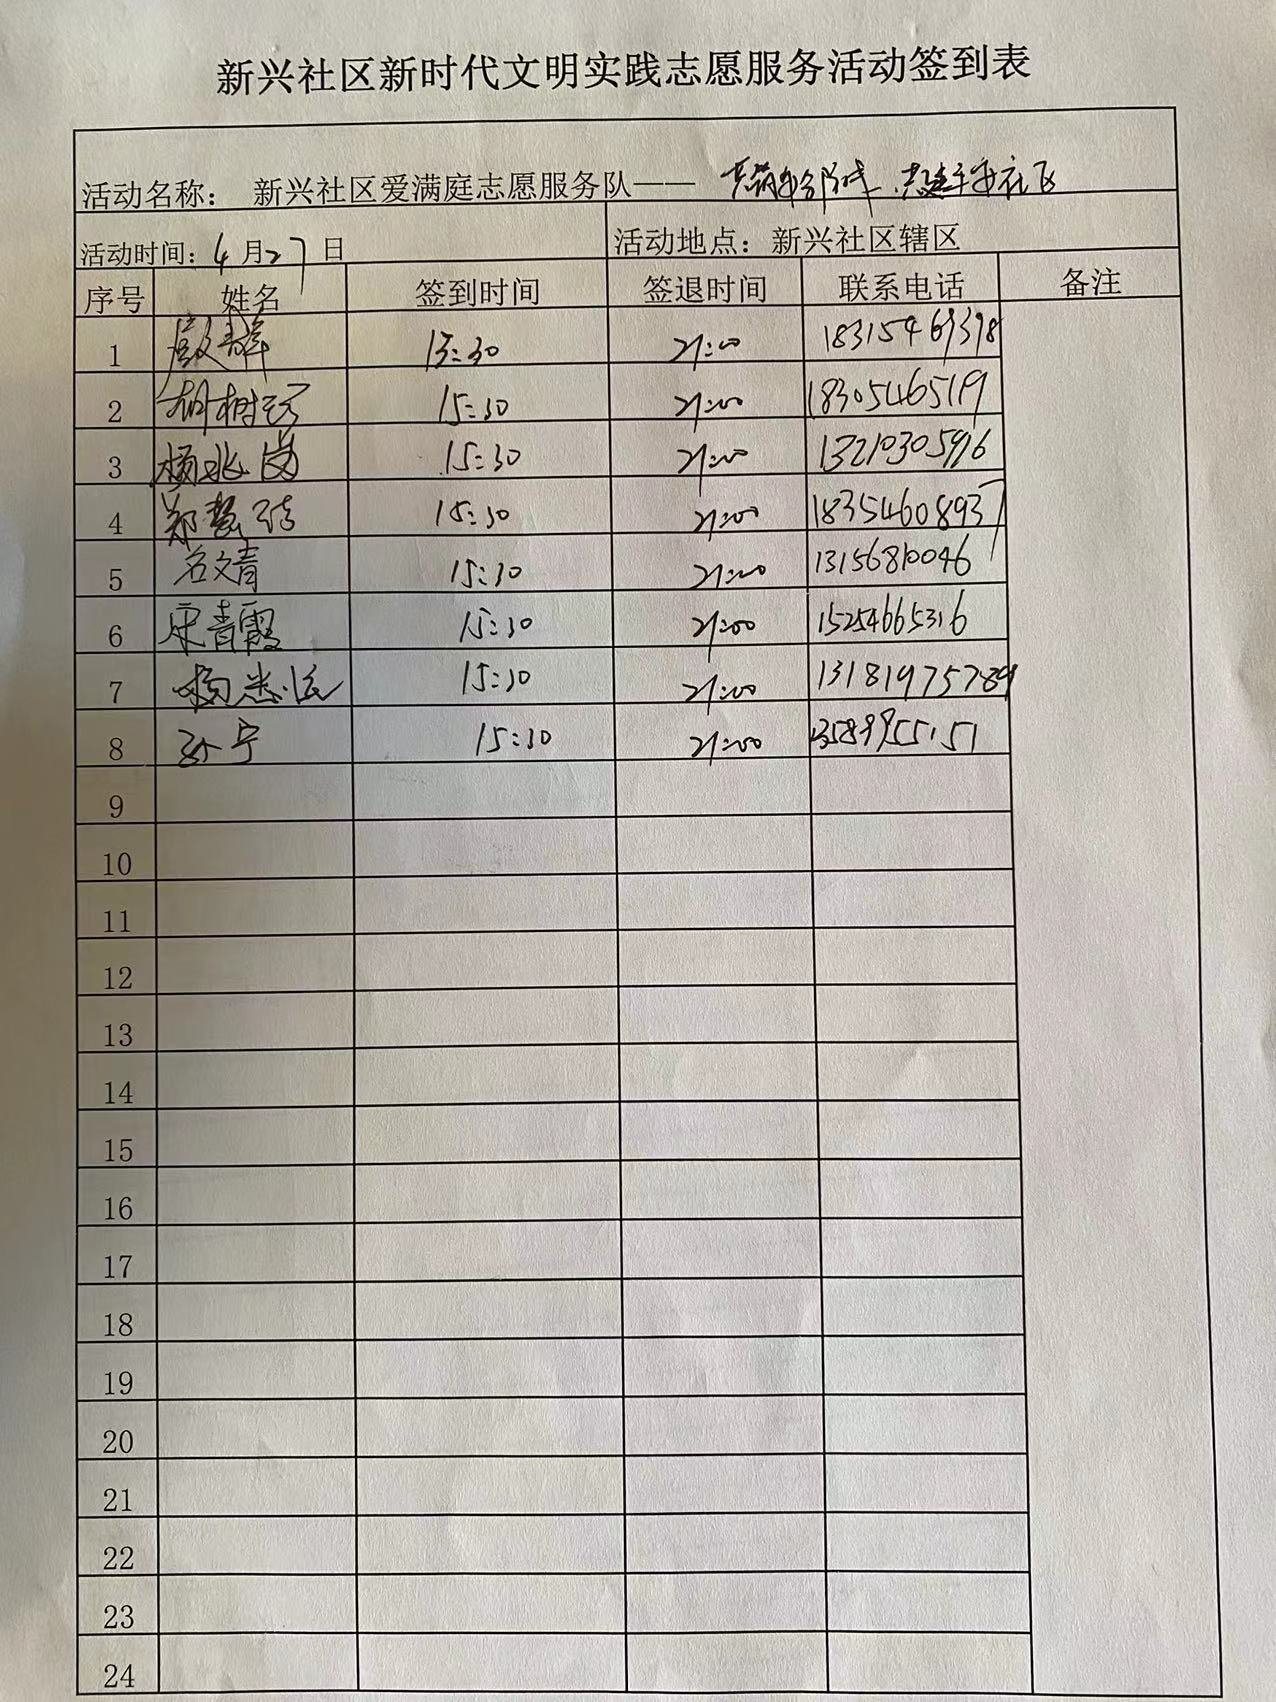 新兴社区新时代文明实践志愿服务活动签到表
活动名称： 新兴社区爱满庭志愿服务队——
活动时间：4月27日 活动地点：新兴社区辖区
序号 姓名 签到时间 签退时间 联系电话 备注
1 15:30 21:00 18315469398
2 15:30 21:00 18305465119
3 杨兆岗 15:30 21:00 13210305996
4 15:30 21:00 18354608937
5 15:30 21:00 13156810046
6 宋青霞 15:30 21:00 15254665316
7 15:30 21:00 13181975789
8 孙宁 15:30 21:00
9
10
11
12
13
14
15
16
17
18
19
20
21
22
23
24